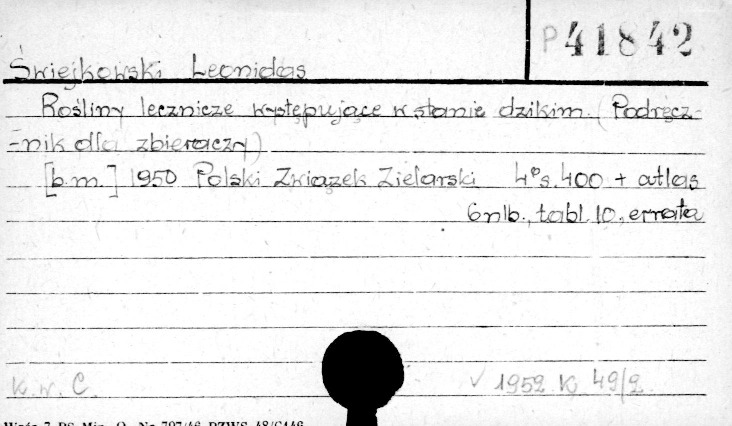 P 41842
Świejkowski Leonidas
Rośliny lecznicze występujące w stanie dzikim. (Podręcz-
-nik dla zbieraczy)
[b.m.] 1950 Polski Związek Zielarski 4° s. 400 + atlas
6 nlb., tabl. 10., errata
K. w. C.
√ 1952 K 49/2.
Wzór 7 PS Min. O. Nr 797/46 PZWS